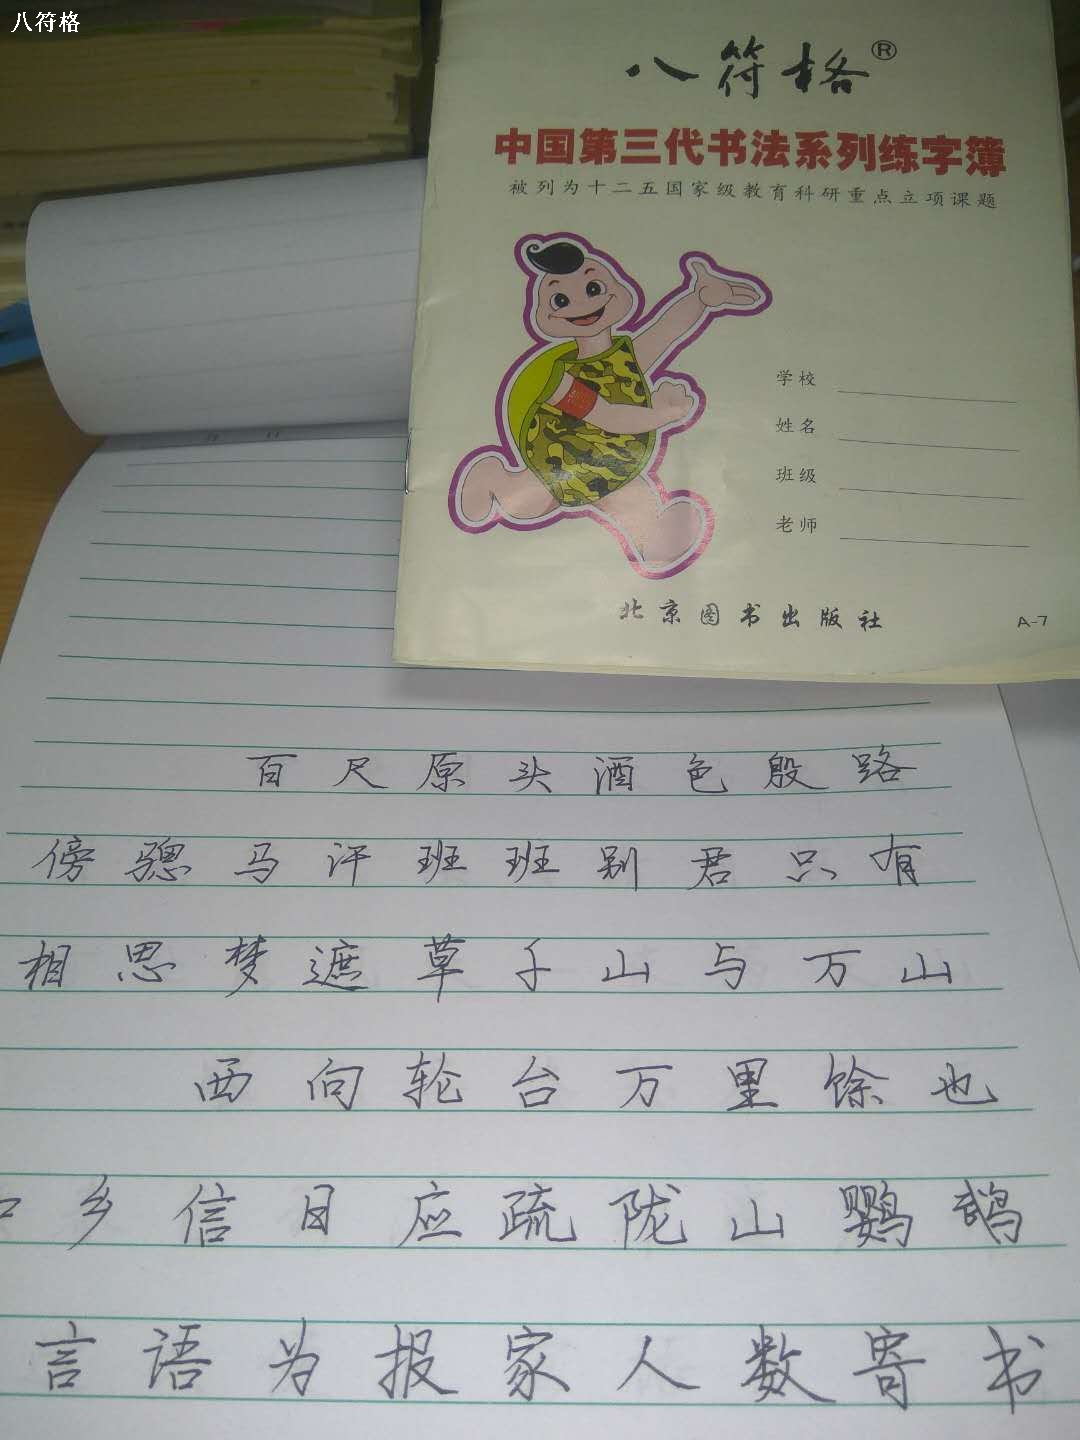 八符格
八符格®
中国第三代书法系列练字簿
被列为十二五国家级教育科研重点立项课题
学校
姓名
班级
老师
北京图书出版社
A-7
百尺原头酒色殷路
傍骢马汗班班别君只有
相思梦遮草千山与万山
西向轮台万里馀也
知乡信日应疏陇山鹦鹉
言语为报家人数寄书